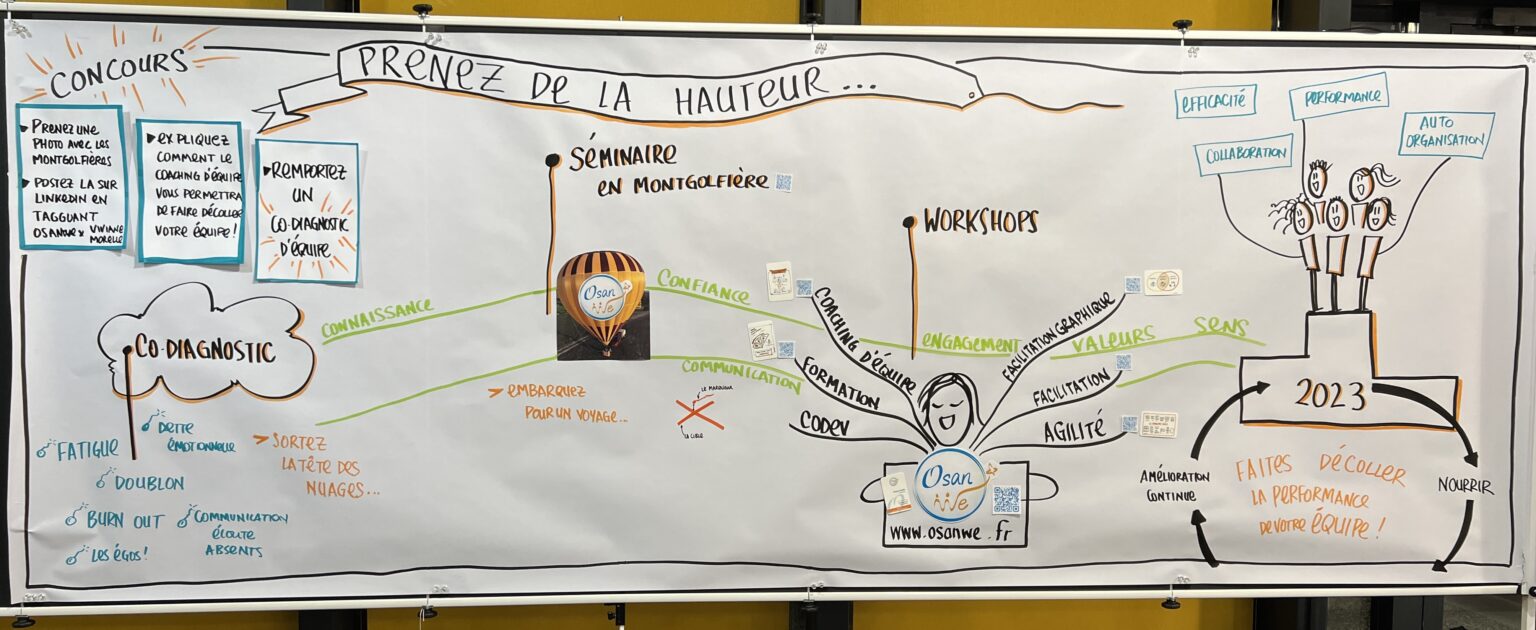 CONCOURS
PRENEZ DE LA HAUTEUR...
▶ PRENEZ UNE
PHOTO AVEC LES
MONTGOLFIÈRES
▶ POSTEZ LA SUR
LINKEDIN EN
TAGGUANT
OSANWE x VIVIANE
MORELLE
▶ EXPLIQUEZ
COMMENT LE
COACHING D'ÉQUIPE
VOUS PERMETTRA
DE FAIRE DÉCOLLER
VOTRE ÉQUIPE!
▶ REMPORTEZ
UN
CO-DIAGNOSTIC
D'ÉQUIPE
CO-DIAGNOSTIC
FATIGUE
DETTE
ÉMOTIONNELLE
DOUBLON
BURN OUT
COMMUNICATION
ÉCOUTE
ABSENTS
LES ÉGOS!
> SORTEZ
LA TÊTE DES
NUAGES...
CONNAISSANCE
SÉMINAIRE
EN MONTGOLFIÈRE
Osan
We
CONFIANCE
COMMUNICATION
> EMBARQUEZ
POUR UN VOYAGE...
LA CIBLE
WORKSHOPS
COACHING D'ÉQUIPE
FORMATION
CODEV
ENGAGEMENT
VALEURS
SENS
FACILITATION GRAPHIQUE
FACILITATION
AGILITÉ
Osan
We
www.osanwe.fr
EFFICACITÉ
PERFORMANCE
COLLABORATION
AUTO
ORGANISATION
2023
AMÉLIORATION
CONTINUE
FAITES DÉCOLLER
LA PERFORMANCE
DE VOTRE ÉQUIPE!
NOURRIR